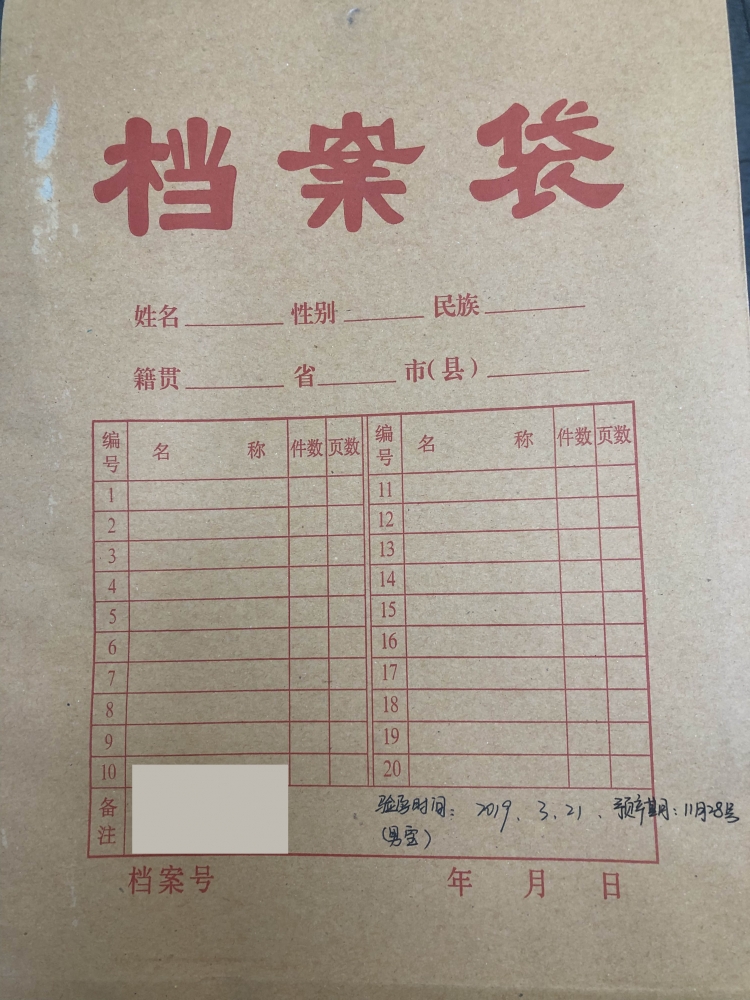 档案袋
姓名 性别 民族
籍贯 省 市(县)
编号 名 称 件数 页数 编号 名 称 件数 页数
1 11
2 12
3 13
4 14
5 15
6 16
7 17
8 18
9 19
10 20
备注 验孕时间：2019.3.21、预产期：11月28号
(男宝)
档案号 年 月 日